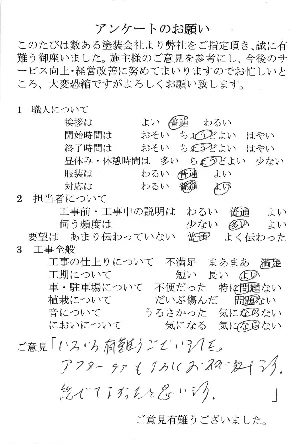 アンケートのお願い
このたびは数ある塗装会社より弊社をご指定頂き、誠に有
難う御座いました。施主様のご意見を参考にし、今後のサ
ービス向上・経営改善に努めてまいりますのでお忙しいと
ころ、大変恐縮ですがよろしくお願い致します。
1 職人について
挨拶は よい 普通 わるい
開始時間は おそい ちょうどよい はやい
終了時間は おそい ちょうどよい はやい
昼休み・休憩時間は 多い ちょうどよい 少ない
服装は わるい 普通 よい
対応は わるい 普通 よい
2 担当者について
工事前・工事中の説明は わるい 普通 よい
伺う頻度は 少ない 多い
要望は あまり伝わっていない 普通 よく伝わった
3 工事全般
工事の仕上りについて 不満足 まあまあ 満足
工期について 短い 長い よい
車・駐車場について 不便だった 特に問題ない
植栽について だいぶ傷んだ 問題ない
音について うるさかった 気にならない
においについて 気になる 気にならない
ご意見「いろいろ有難うございました。
アフターケアも
」
ご意見有難うございました。